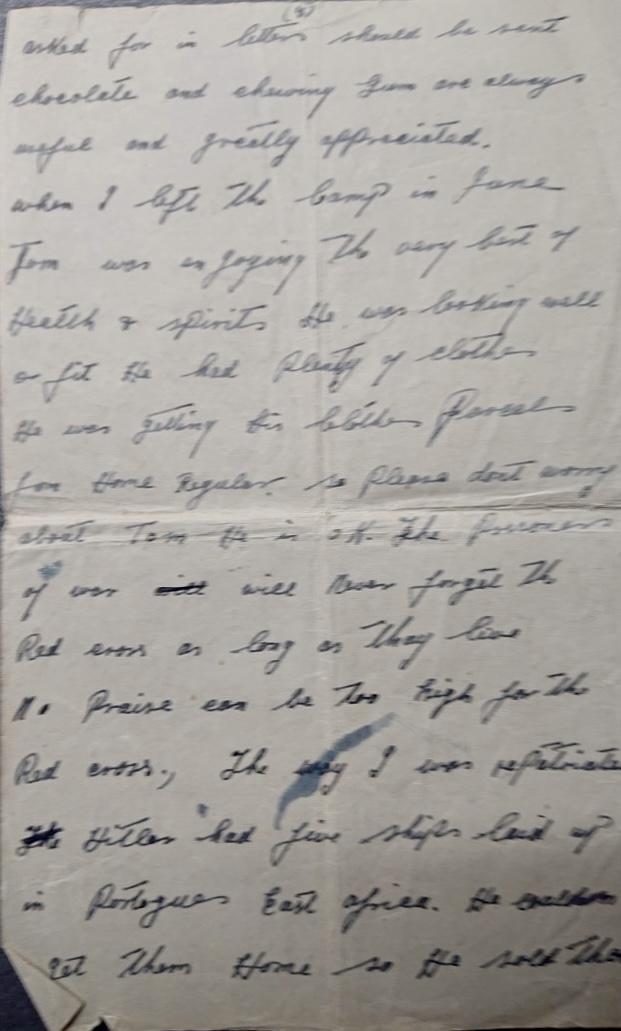 (8)
asked for in letters should be sent
chocolate and chewing Gum are always
useful and greatly appreciated.
when I left the Camp in June
Tom was enjoying the very best of
Health & spirits He was looking well
or fit He had Plenty of clothes
He was getting his Clothes Parcels
from Home Regular. so Please dont worry
about Tom He is OK. The Prisoners
of war will Never forget the
Red cross as long as they live
No Praise can be too high for the
Red cross., The way I was repatriate
Hitler had five ships laid up
in Portegues East africa. He
get them Home so He sold the